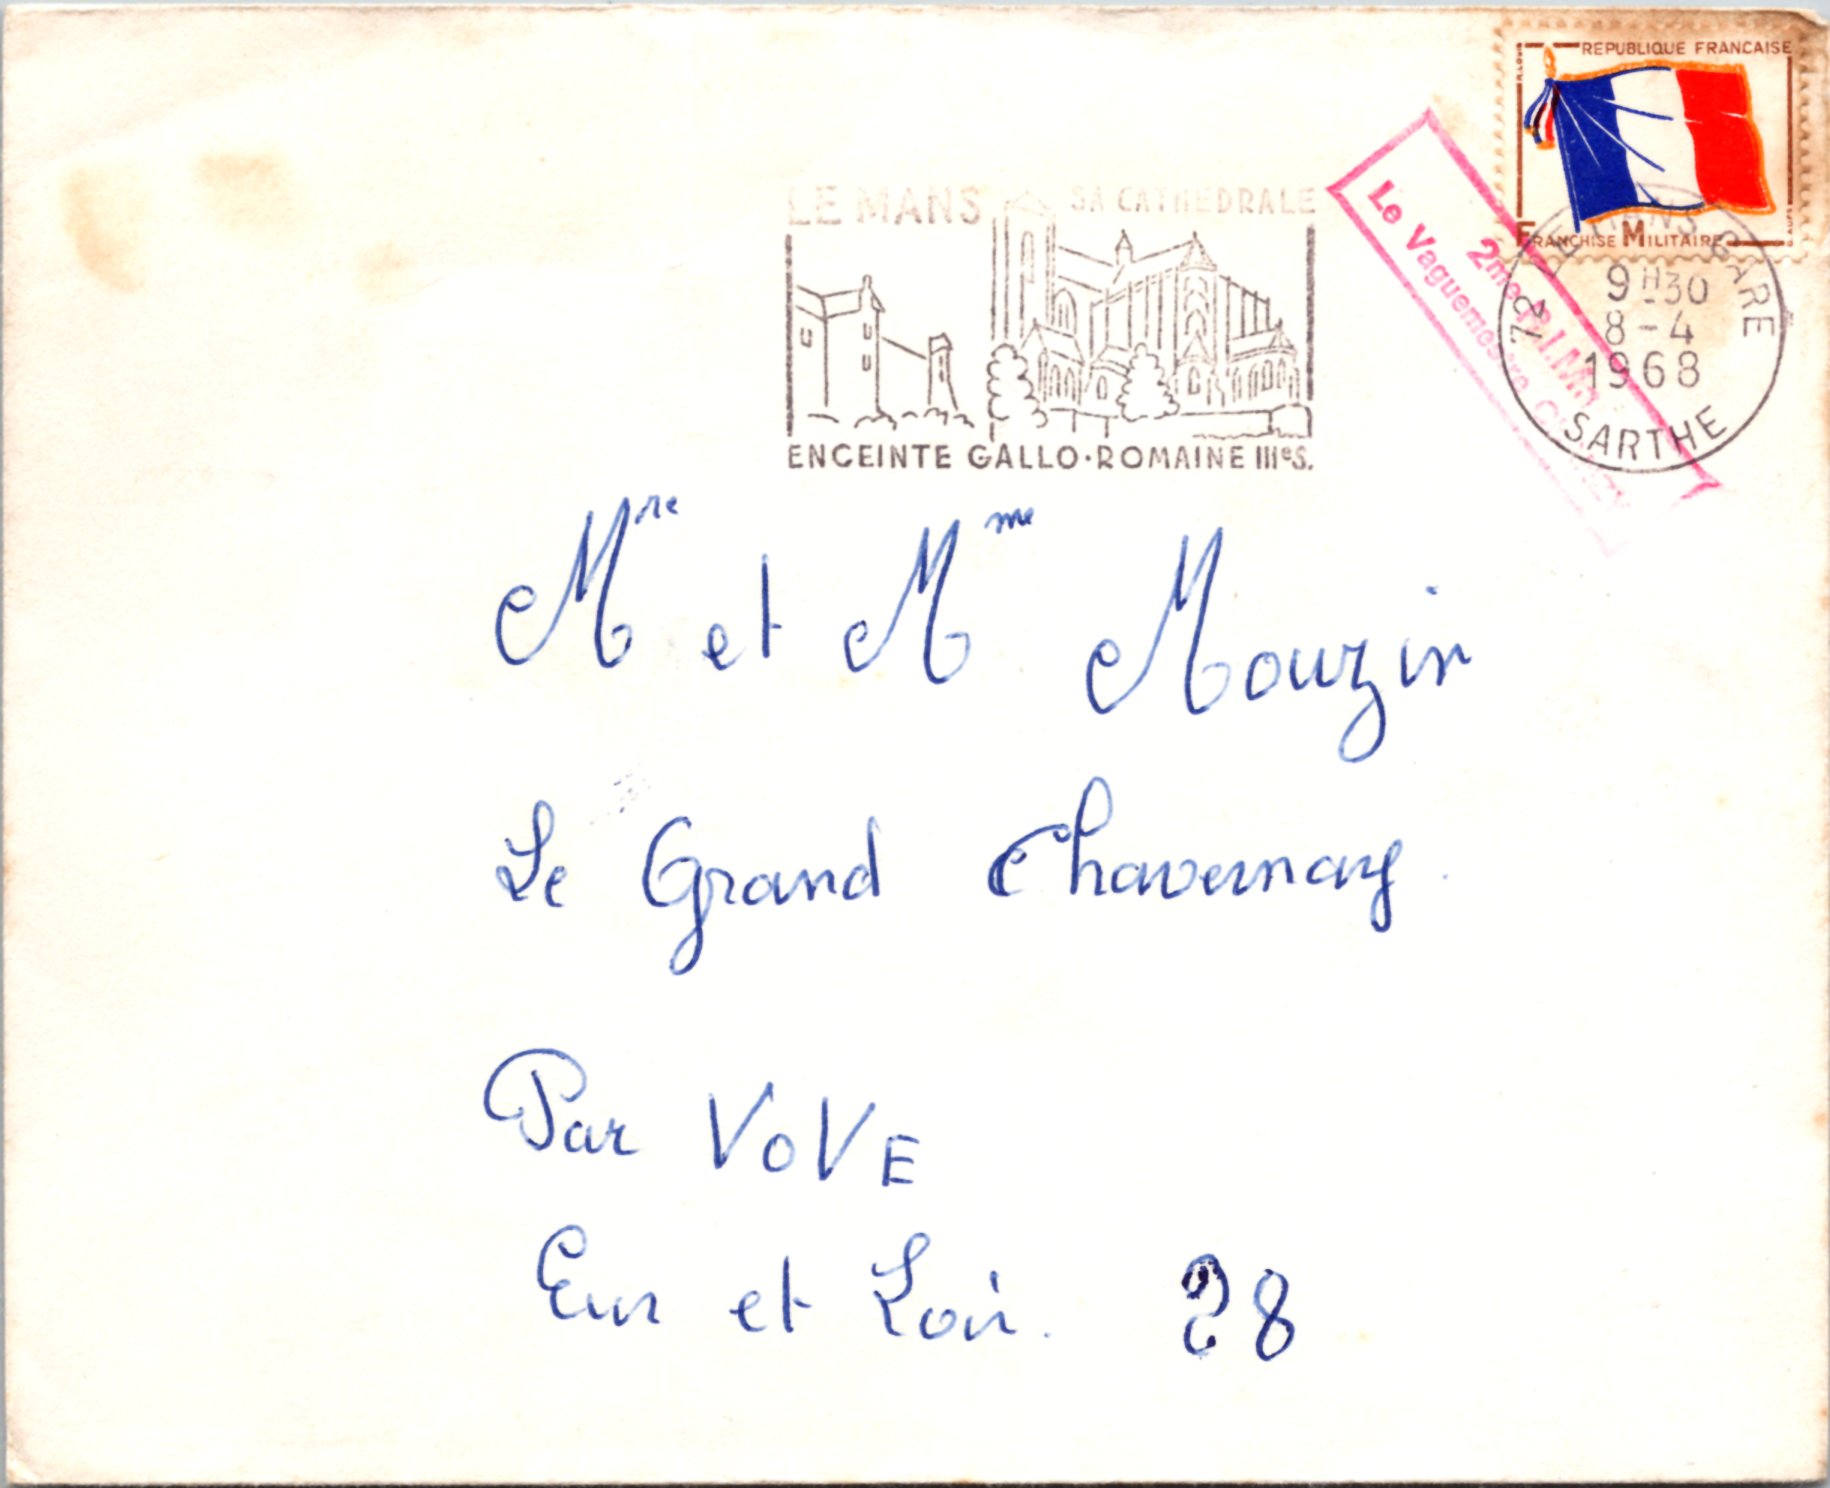 REPUBLIQUE FRANCAISE
FRANCHISE MILITAIRE
LE MANS SA CATHEDRALE
ENCEINTE GALLO·ROMAINE IIIᵉS.
2me R.I.Ma
Le Vaguemestre
72 LE MANS GARE
9H30
8-4
1968
SARTHE
Mre et Mme Mouzin
Le Grand Chavernay.
Par VOVE
Eur et Loir. 28